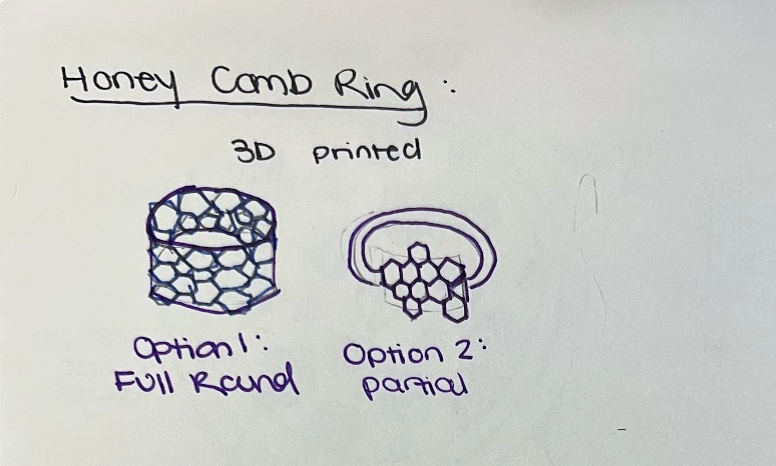 Honey Comb Ring:
3D printed
Option 1:
Full Round
Option 2:
partial